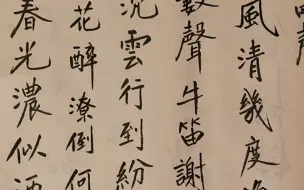 風清幾度
聲牛笛謝
雲行到紛
花醉潦倒何
春光濃似酒